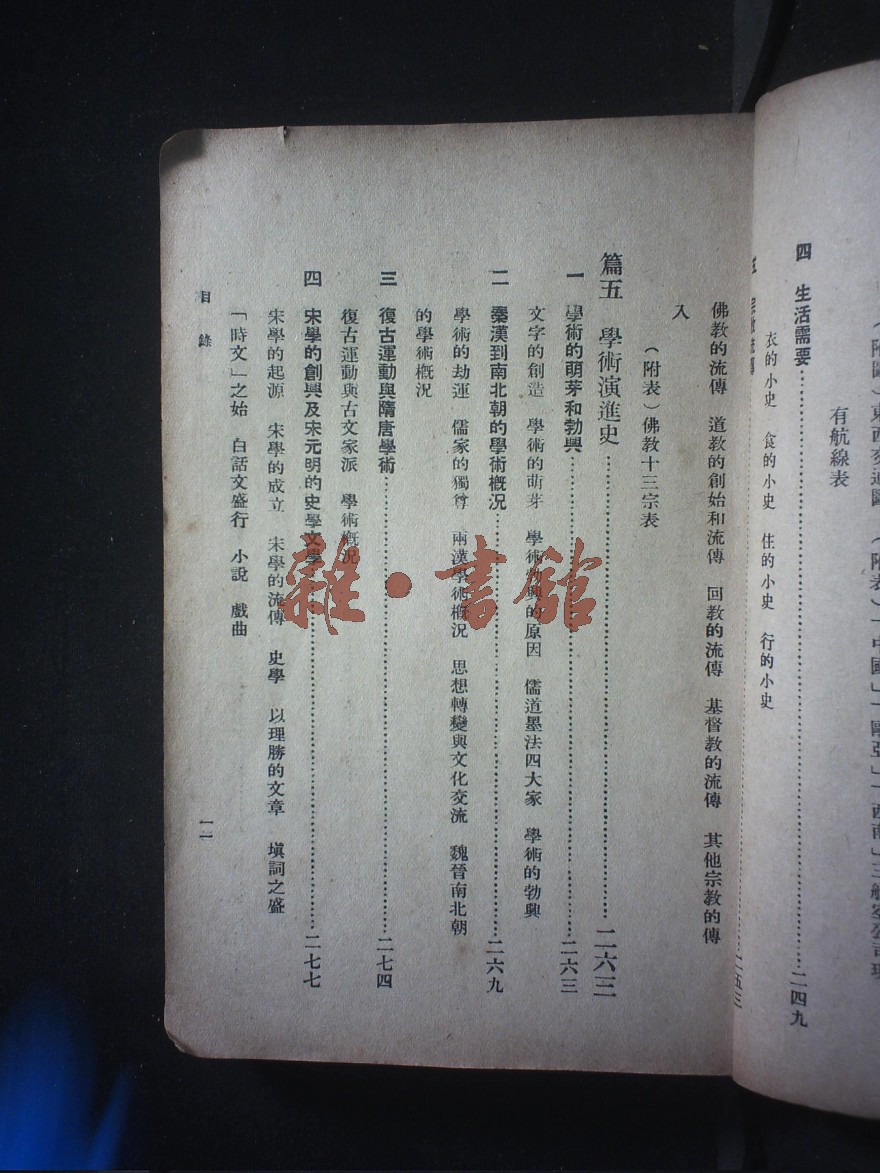 有航線表
四　生活需要……二四九
衣的小史　食的小史　住的小史　行的小史
佛教的流傳　道教的創始和流傳　回教的流傳　基督教的流傳　其他宗教的傳
入
（附表）佛教十三宗表
篇五　學術演進史……二六三
一　學術的萌芽和勃興……二六三
文字的創造　學術的萌芽　學術勃興的原因　儒道墨法四大家　學術的勃興
二　秦漢到南北朝的學術概況……二六九
學術的劫運　儒家的獨尊　兩漢學術概況　思想轉變與文化交流　魏晉南北朝
的學術概況
三　復古運動與隋唐學術……二七四
復古運動與古文家派　學術概況
四　宋學的創興及宋元明的史學文學……二七七
宋學的起源　宋學的成立　宋學的流傳　史學　以理勝的文章　塡詞之盛
「時文」之始　白話文盛行　小說　戲曲
目錄
一一
雜·書館